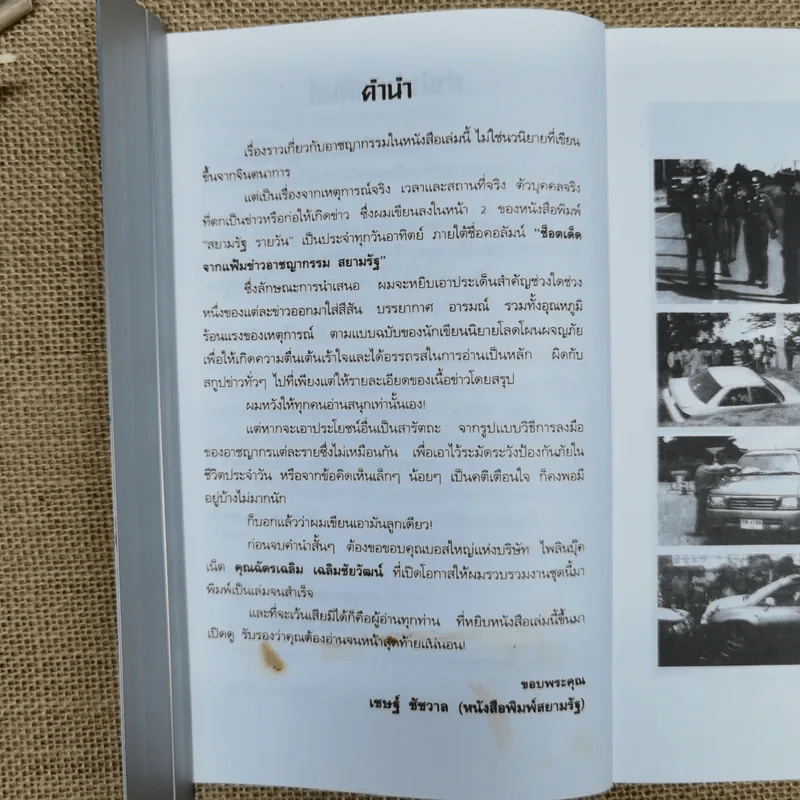 คำนำ
เรื่องราวเกี่ยวกับอาชญากรรมในหนังสือเล่มนี้ ไม่ใช่นวนิยายที่เขียน
ขึ้นจากจินตนาการ
แต่เป็นเรื่องจากเหตุการณ์จริง เวลาและสถานที่จริง ตัวบุคคลจริง
ที่ตกเป็นข่าวหรือก่อให้เกิดข่าว ซึ่งผมเขียนลงในหน้า 2 ของหนังสือพิมพ์
"สยามรัฐ รายวัน" เป็นประจำทุกวันอาทิตย์ ภายใต้ชื่อคอลัมน์ "ช็อตเด็ด
จากแฟ้มข่าวอาชญากรรม สยามรัฐ"
ซึ่งลักษณะการนำเสนอ ผมจะหยิบเอาประเด็นสำคัญช่วงใดช่วง
หนึ่งของแต่ละข่าวออกมาใส่สีสัน บรรยากาศ อารมณ์ รวมทั้งอุณหภูมิ
ร้อนแรงของเหตุการณ์ ตามแบบฉบับของนักเขียนนิยายโลดโผนผจญภัย
เพื่อให้เกิดความตื่นเต้นเร้าใจและได้อรรถรสในการอ่านเป็นหลัก ผิดกับ
สกูปข่าวทั่วๆ ไปที่เพียงแต่ให้รายละเอียดของเนื้อข่าวโดยสรุป
ผมหวังให้ทุกคนอ่านสนุกเท่านั้นเอง!
แต่หากจะเอาประโยชน์อื่นเป็นสารัตถะ จากรูปแบบวิธีการลงมือ
ของอาชญากรแต่ละรายซึ่งไม่เหมือนกัน เพื่อเอาไว้ระมัดระวังป้องกันภัยใน
ชีวิตประจำวัน หรือจากข้อคิดเห็นเล็กๆ น้อยๆ เป็นคติเตือนใจ ก็คงพอมี
อยู่บ้างไม่มากนัก
ก็บอกแล้วว่าผมเขียนเอามันลูกเดียว!
ก่อนจบคำนำสั้นๆ ต้องขอขอบคุณบอสใหญ่แห่งบริษัท ไพลินบุ๊ค
เน็ต คุณฉัตรเฉลิม เฉลิมชัยวัฒน์ ที่เปิดโอกาสให้ผมรวบรวมงานชุดนี้มา
พิมพ์เป็นเล่มจนสำเร็จ
และที่จะเว้นเสียมิได้ก็คือผู้อ่านทุกท่าน ที่หยิบหนังสือเล่มนี้ขึ้นมา
เปิดดู รับรองว่าคุณต้องอ่านจนหน้าสุดท้ายแน่นอน!
ขอบพระคุณ
เชษฐ์ ชัชวาล (หนังสือพิมพ์สยามรัฐ)